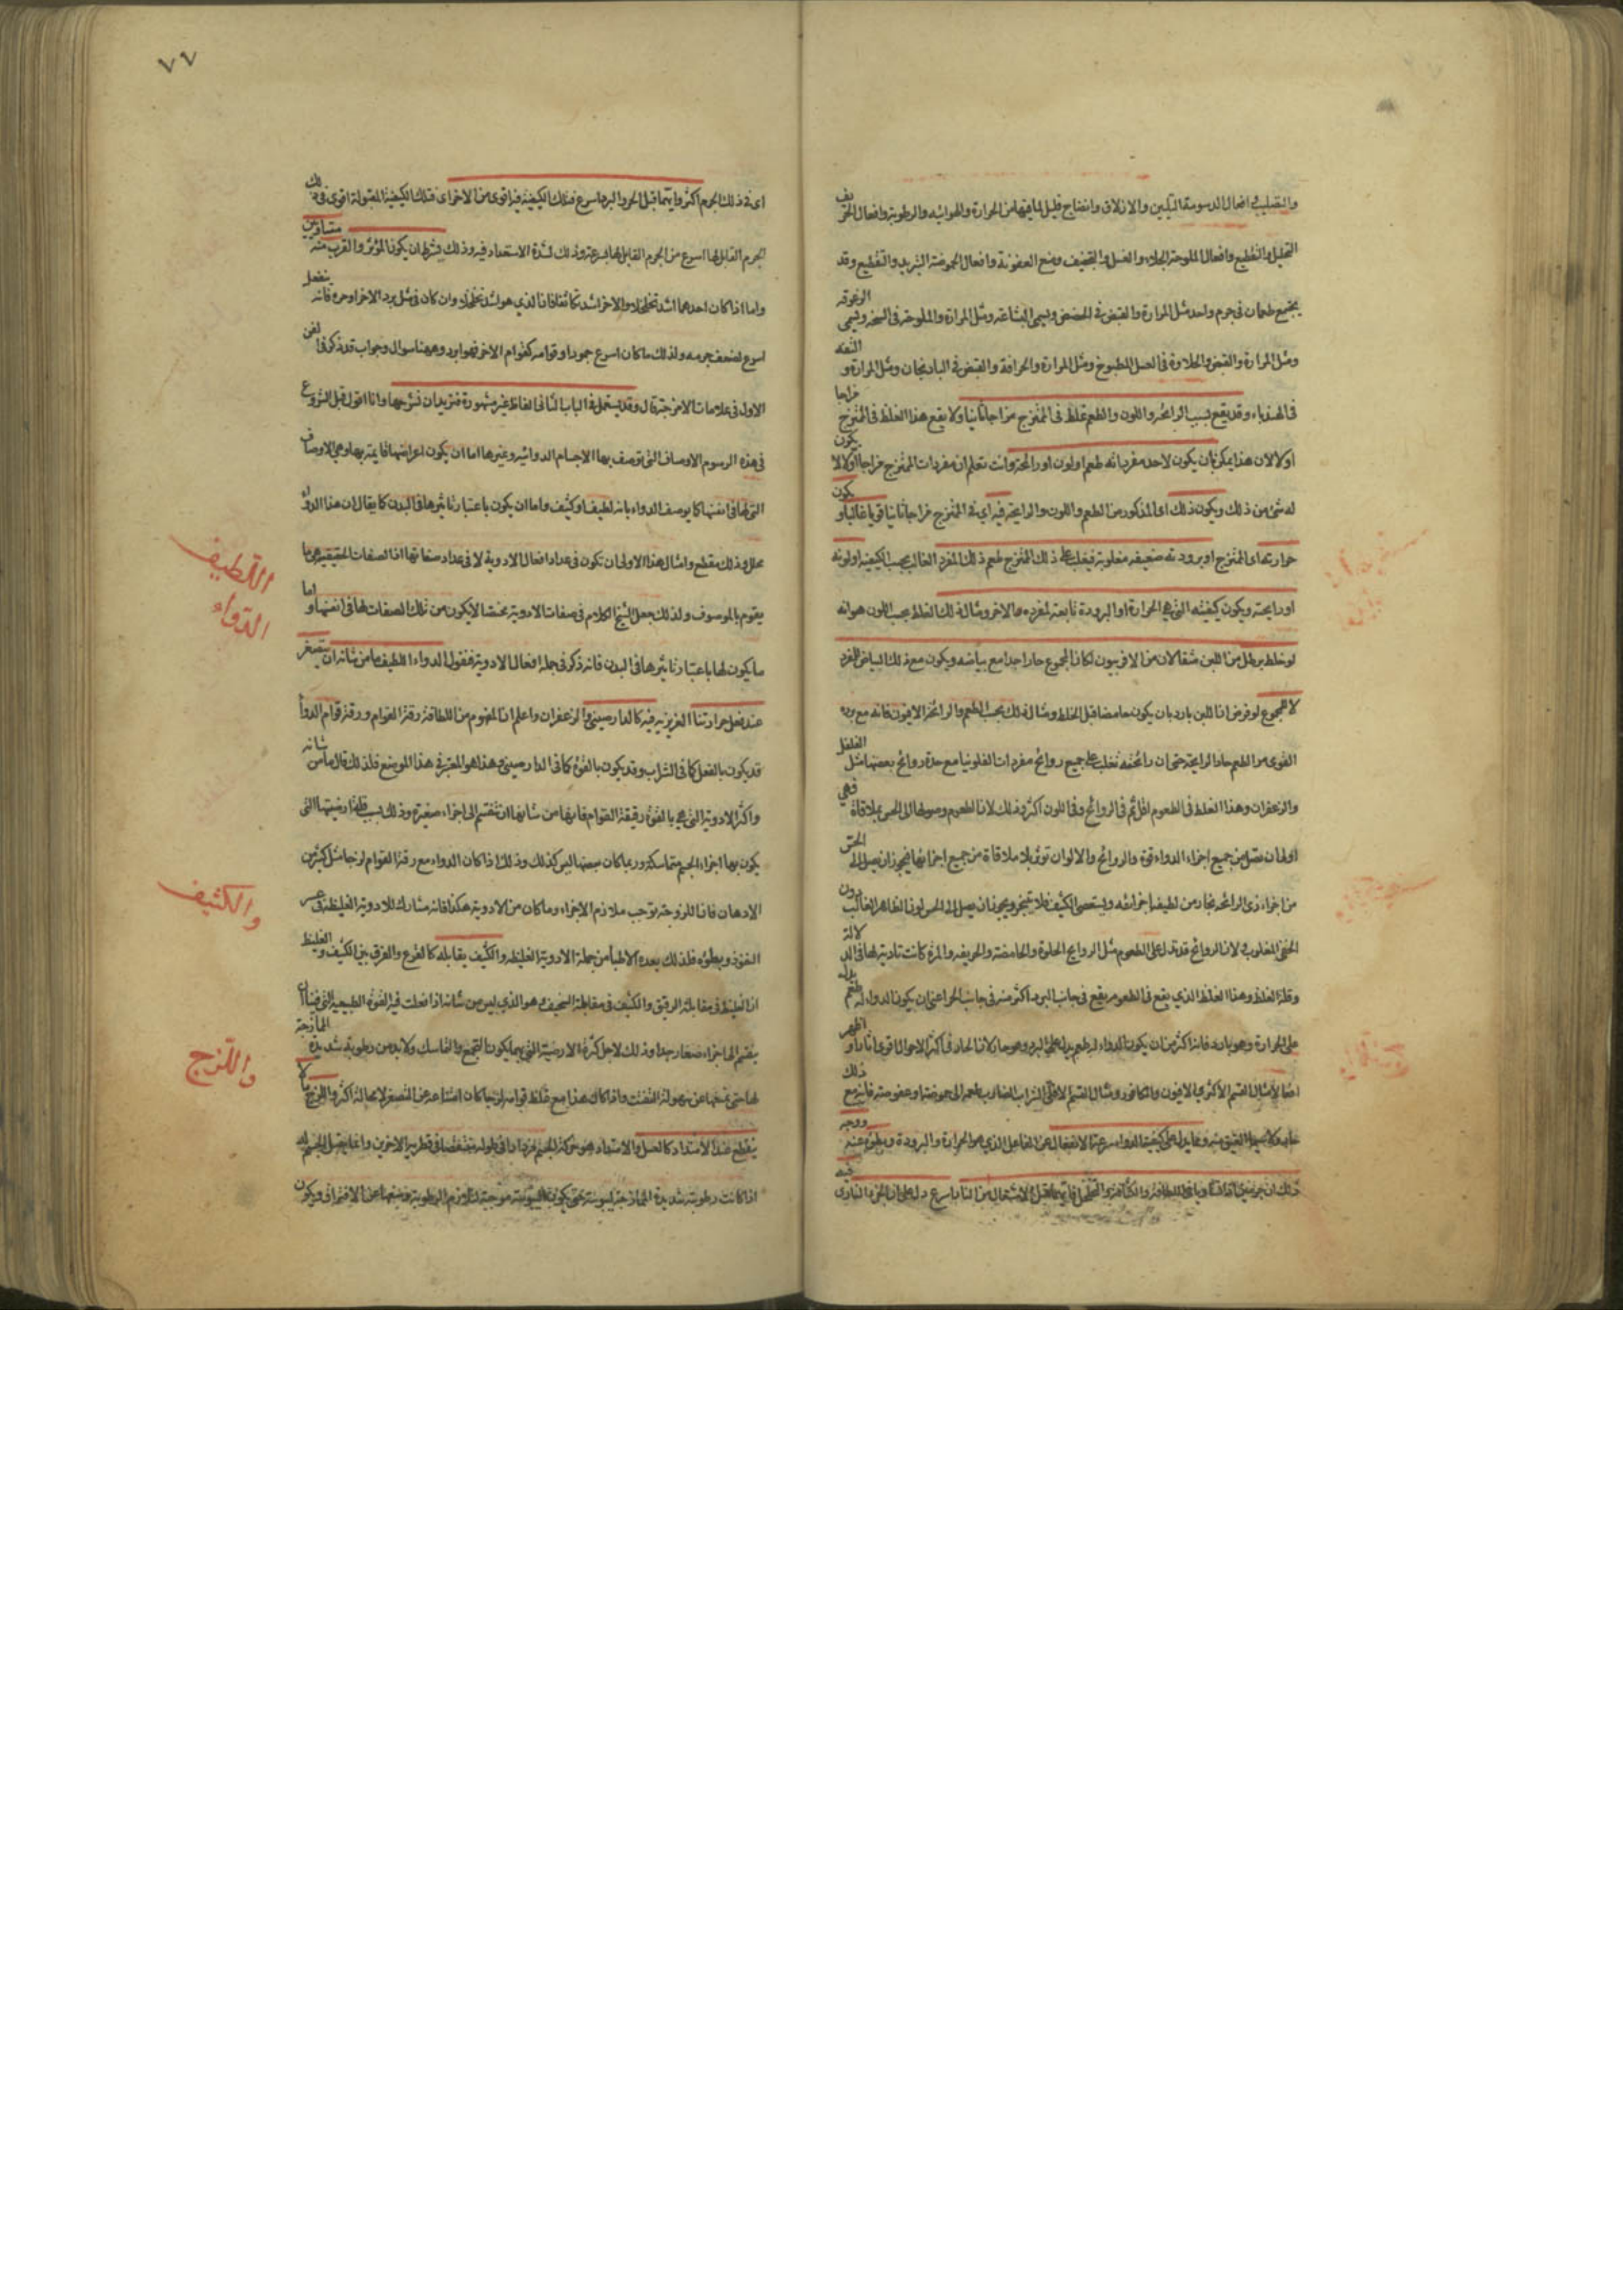 والتصليب افعال الدسومة التليين والازلاق وانضاج قليل لما فيها من الحرارة والهوائيه والرطوبة وافعال الحريف
التحليل والتقطيع وافعال الملوحة الجلاء والغسل والتجفيف ومنع العفونة وافعال الحموضة التبريد والتقطيع وقد
يجتمع طعمان فى جرم واحد مثل المرارة والقبض فى الحضض ويسمى البشاعة ومثل المرارة والملوحة فى السبخه ويسمى الزعوقه
ومثل المرارة والقبض والحلاوة فى العسل المطبوخ ومثل المرارة والحرافة والقبض فى الباذنجان ومثل المرارة و التفه
فى الهندباء وقد يقع بسبب الرائحه واللون والطعم غلط فى الممتزج مزاجا ثانيا ولا يقع هذا الغلط فى الممتزج مزاجا
اولا لان هذا يمكن بان يكون لاحد مفرداته طعم اولون اورائحة وانت تعلم ان مفردات الممتزج مزاجا اولا لا يكون
له شئ من ذلك ويكون ذلك اى المذكور من الطعم واللون والرايحة فيه اى فى الممتزج مزاجا ثانيا قويا غالبا و يكون
حرارته اى الممتزج اوبرودته ضعيفه مغلوبة فيغلب على ذلك الممتزج طعم ذلك المفرد الغالب بحسب الكيفيه اولونه
اورايحته ويكون كيفيته التى هى الحرارة او البرودة تابعة لمفرده الاخر ومثال ذلك الغلط بحسب اللون هو انه
لو خلط برطل من اللبن مثقالان من الافربيون لكان المجموع حارا جدا مع بياضه ويكون مع ذلك البياض للمفرد
لا للمجموع لو فرض ان اللبن بارد بان يكون حامضا قبل الخلط ومثال ذلك بحسب الطعم والرائحة الافيون فانه مع برده
القوى مر الطعم حاد الرايحة حتى ان رائحته تغلب على جميع روائح مفردات الفلونيا مع حدة روائح بعضها مثل الفلفل
والزعفران وهذا الغلط فى الطعوم اقل ثم فى الروائح وفى اللون اكثر وذلك لان الطعوم وصولها الى الحس بملاقاة فهى
اولى ان تصل من جميع اجزاء الدواء قوة والروائح والالوان تؤثر بلا ملاقاة من جميع اجزائها فيجوز ان يصل الى الحس
من اجزاء ذى الرائحه بخار من لطيف اجزائه ويستعصى الكثيف فلا يتبخر ويجوز ان يصل الى الحس لون الظاهر الغالب دون
الخفى المغلوب لان الروائح قد تدل على الطعوم مثل الروايح الحلوة والحامضة والحريفه والمرة كانت تاديته لها فى الدلالة
وقلة الغلط وهذا الغلط الذي يقع فى الطعوم يقع فى جانب البرد اكثر منه فى جانب الحر اعنى ان يكون الدواء له طعم يدل
على الحرارة وهو بارد فانه اكثر من ان يكون الدواء له طعم يدل على البرد وهو حار لان الحار فى اكثر الاحوال اقوى اثارا و اظهر
مثال القسم الاكثرى الافيون والكافور ومثال القسم الاقلى الشراب الضارب طعمه الى حموضة او عفوصة فانه مع ذلك
ومما يدل على كيفية الدواء سرعة الانفعال عن الفاعل الذي هو الحرارة والبرودة وبطؤه عنه ووجه
ذلك ان جرمين اذا تساويا فى اللطافة والكثافة والتخلخل فايهما قبل الاشتعال من النار اسرع دل على ان الجزء النارى فيه
٧٧
اى فى ذلك الجرم اكثر وايتهما قبل الحر والبرد اسرع فتلك الكيفية فيه اقوى من الاخر اى تلك الكيفية المقبولة اقوى فى ذلك
الجرم القابل لها اسرع من الجرم القابل لها بسرعة وذلك لشدة الاستعداد فيه وذلك بشرط ان يكون المؤثر والقرب منه متساويين
واما اذا كان احدهما اشد تخلخلا والاخر اشد تكاثفا فان الذي هو اشد تخلخلا وان كان فى مثل برد الاخر اوحره فانه ينفعل
اسرع لضعف جرمه ولذلك ما كان اسرع جمودا وقوامه كقوام الاخر فهو ابرد وههنا سوال وجواب قد ذكر فى الفن
الاول فى علامات الامزجة قال وقد يستعمل فى الباب الثانى الفاظ غير مشهورة فنريد ان نشرحها وانا اقول قبل الشروع
فى هذه الرسوم الاوصاف التى توصف بها الاجسام الدوائيه وغيرها اما ان يكون اعراضها قايمة بها وهى الاوصاف
التى لها فى انفسها كما يوصف الدواء بانه لطيف او كثيف واما ان يكون باعتبار تاثيرها فى البدن كما يقال ان هذا الدواء
محلل وذلك مقطع وامثال هذا الاولى ان تكون فى عداد افعال الادوية لا فى عداد صفاتها اذ الصفات الحقيقيه هى ما
يقوم بالموصوف ولذلك جعل الشيخ الكلام فى صفات الادوية مختصا لا يكون من تلك الصفات لها فى انفسها واما
ما يكون لها باعتبار تاثيرها فى البدن فانه ذكر فى جملة افعال الادوية فنقول الدواء اللطيف ما من شانه ان يتصغر
عند فعل حرارتنا الغريزيه فيه كالدارصينى والزعفران واعلم ان المفهوم من اللطافة رقة القوام ورقة قوام الدواء
قد يكون بالفعل كما فى الشراب وقد يكون بالقوة كما فى الدارصينى وهذا هو المعتبر فى هذا الموضع فلذلك قال ما من شانه
واكثر الادوية التى هى بالقوة رقيقة القوام فانها من شانها ان تنقسم الى اجزاء صغيرة وذلك بسبب قلة ارضيتها التى
يكون بها اجزاء الجسم متماسكة وربما كان بعضها ليس كذلك وذلك اذا كان الدواء مع رقة القوام لزجا مثل كثير من
الادهان فان اللزوجة توجب تلازم الاجزاء وما كان من الادوية هكذا فانه مشارك للادوية الغليظة فى عسر
النفوذ وبطؤه فلذلك يعده الاطبا من جملة الادوية الغليظه والكثيف يقابله كالقرع والفرق بين الكثيف والغليظ
ان الغليظ فى مقابلة الرقيق والكثيف فى مقابلة السخيف وهو الذي ليس من شانه اذا فعلت فيه القوة الطبيعية التى فينا ان
ينقسم الى اجزاء صغار جدا وذلك لاجل كثرة الارضية التى بها يكون التجمع والتماسك ولابد من رطوبة شديدة الممازجة
لها حتى تمنعها عن سهولة التفتت واذا كان هذا مع غلظ قوامه لزجا كان امتناعه عن التصغر لا محالة اكثر واللزج ما لا
ينقطع عند الامتداد كالعسل والامتداد هو حركة الجسم مزدادا فى طوله متنقصا فى قطريه الاخرين وانما يحصل للجسم ذلك
اذا كانت رطوبته شديدة الممازجة ليبوسته حتى يكون اليبوسة موجبة لتلازم الرطوبة ومنعها عن الافتراق ويكون
اللطيف
الدواء
والكثيف
واللزج